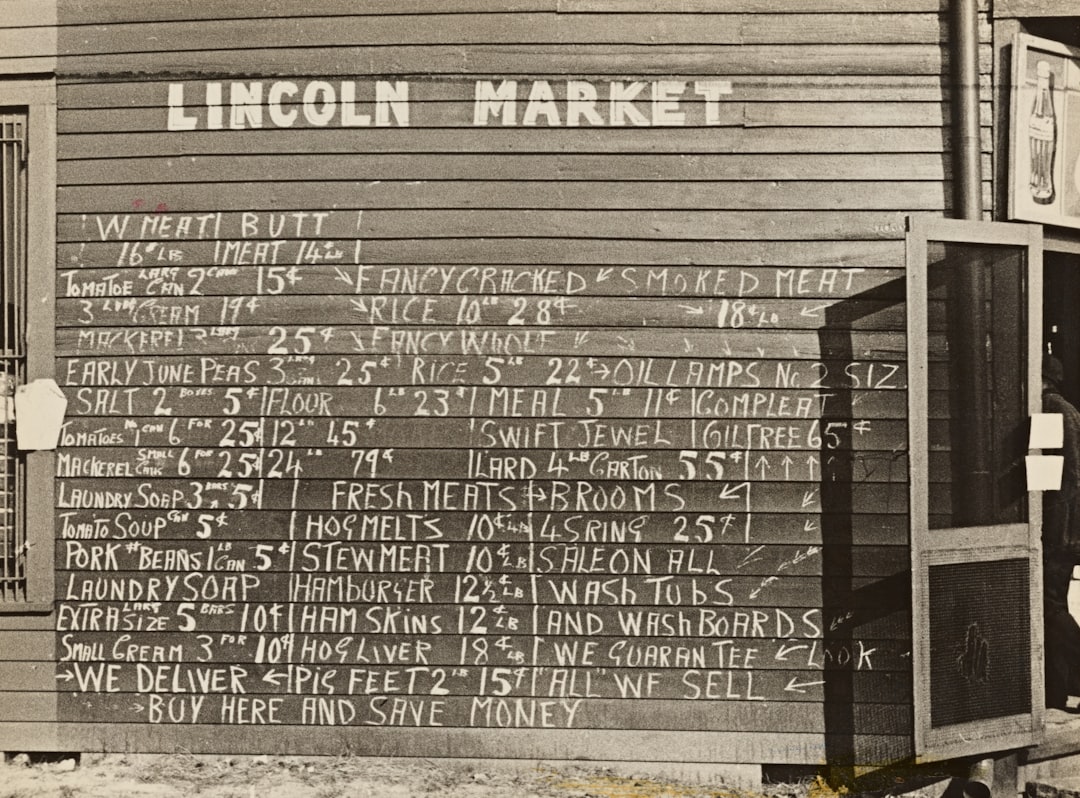 LINCOLN MARKET
W MEAT BUTT
16¢ LB MEAT 14¢ LB
TOMATOE LARG CAN 2 CANS 15¢ FANCY CRACKED SMOKED MEAT
3 CREAM 19¢ RICE 10 LB 28¢ 18¢ LB
MACKEREL 3 25¢ FANCY WHOLE
EARLY JUNE PEAS 3 25¢ RICE 5 LB 22¢ OIL LAMPS No 2 SIZ
SALT 2 BOXES 5¢ FLOUR 6 LB 23¢ MEAL 5 LB 11¢ COMPLEAT
TOMATOES 1 CAN 6 FOR 25¢ 12 LB 45¢ SWIFT JEWEL OIL FREE 65¢
MACKEREL SMALL CANS 6 FOR 25¢ 24 LB 79¢ LARD 4 LB CARTON 55¢
LAUNDRY SOAP 3 BARS 5¢ FRESH MEATS BROOMS
TOMATO SOUP CAN 5¢ HOG MELTS 10¢ LB 4 SRING 25¢
PORK # BEANS 1 LB CAN 5¢ STEW MEAT 10¢ LB SALE ON ALL
LAUNDRY SOAP HAMBURGER 12½¢ LB WASH TUBS
EXTRA LARG SIZE 5 BARS 10¢ HAM SKINS 12¢ LB AND WASH BOARDS
SMALL CREAM 3 FOR 10¢ HOG LIVER 18¢ LB WE GUARANTEE LOOK
WE DELIVER PIG FEET 2 LB 15¢ "ALL" WE SELL
BUY HERE AND SAVE MONEY